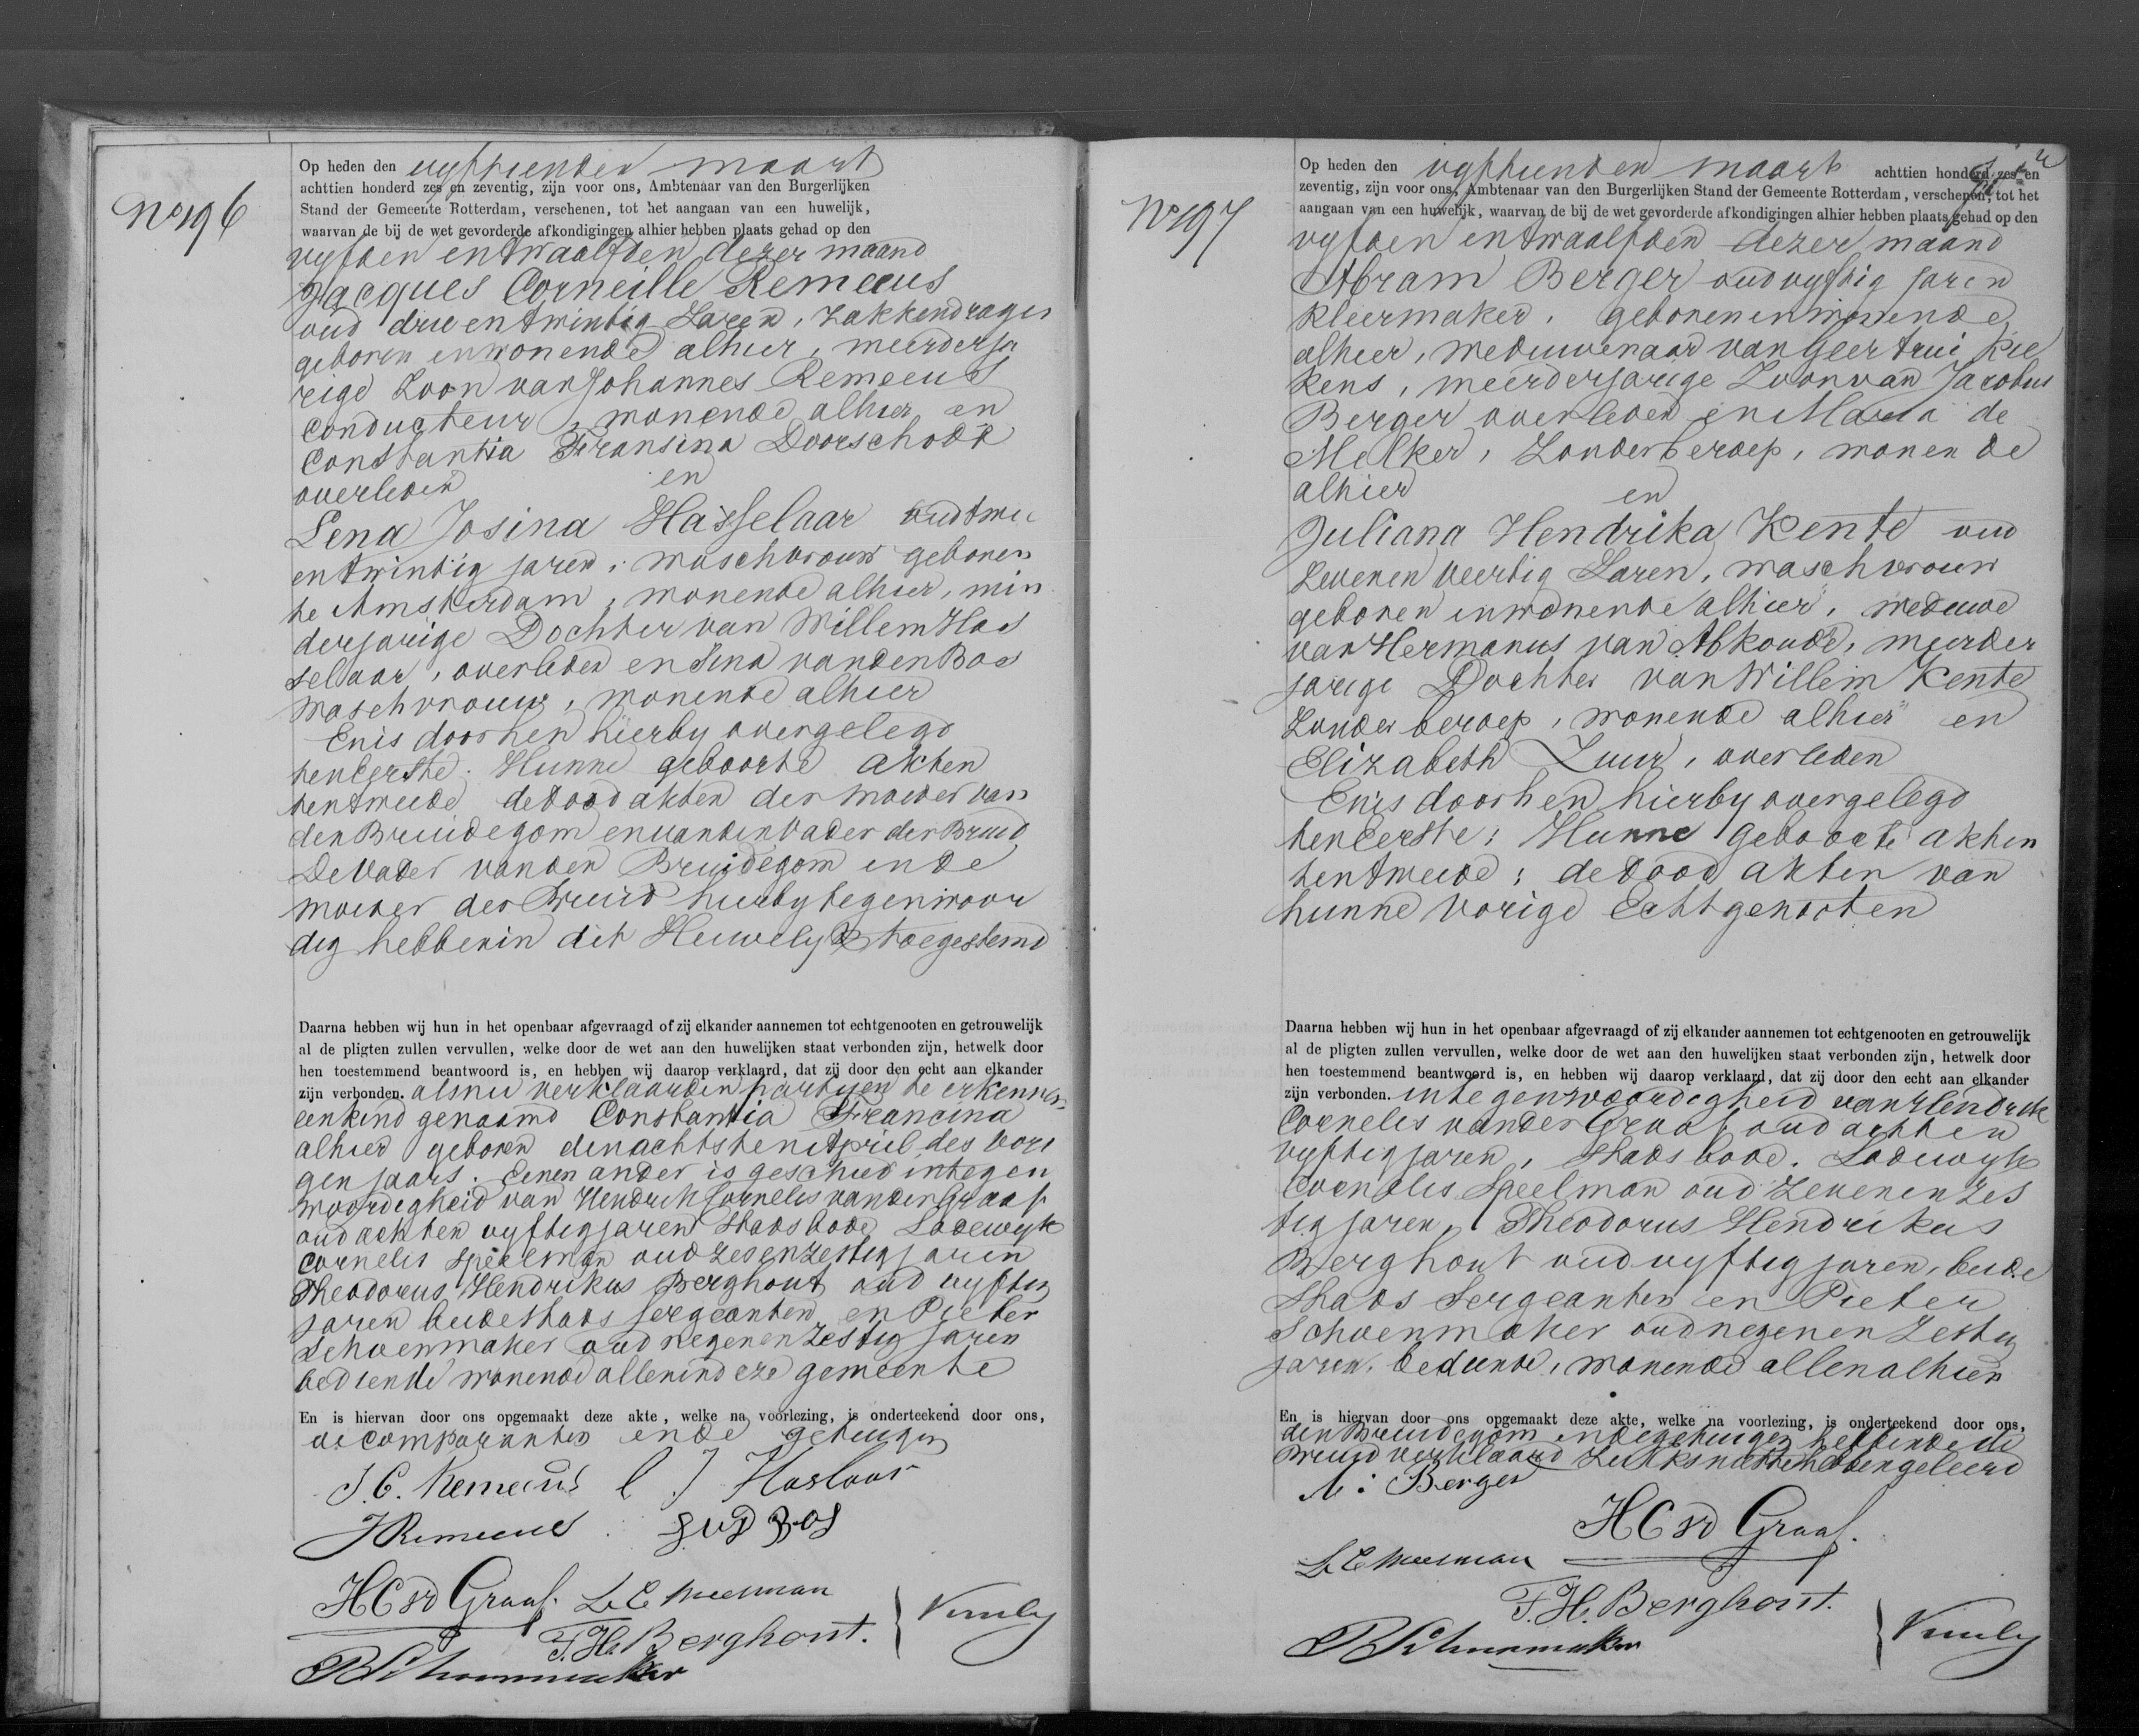 No 196
Op heden den vyftienden maart
achttien honderd zes en zeventig, zijn voor ons, Ambtenaar van den Burgerlijken
Stand der Gemeente Rotterdam, verschenen, tot het aangaan van een huwelijk,
waarvan de bij de wet gevorderde afkondigingen alhier hebben plaats gehad op den
vyfden en twaalfden dezer maand
Jacques Corneille Remeeus
oud drie en twintig Jaren, Zakkendrager
geboren en wonende alhier, meerderja
rige Zoon van Johannes Remeeus
Conducteur, wonende alhier en
Constantia Fransina Doorschodt
overleden en
Lena Josina Hasselaar oud twee
en twintig jaren, waschvrouw geboren
te Amsterdam, wonende alhier, min
derjarige Dochter van Willem Has
selaar, overleden en Sina van den Bos
waschvrouw, wonende alhier
En is door hen hierby overgelegd
ten Eerste: Hunne geboorte akten
ten tweede de dood akten der moeder van
den Bruidegom en van den vader der Bruid
De Vader van den Bruidegom en de
moeder der Bruid hierby tegenwoor
dig hebben in dit Huwelyk toegestemd
Daarna hebben wij hun in het openbaar afgevraagd of zij elkander aannemen tot echtgenooten en getrouwelijk
al de pligten zullen vervullen, welke door de wet aan den huwelijken staat verbonden zijn, hetwelk door
hen toestemmend beantwoord is, en hebben wij daarop verklaard, dat zij door den echt aan elkander
zijn verbonden. alsnu verklaarden partyen te erkennen
een kind genaamd Constantia Francina
alhier geboren den achtsten April des vori
gen jaars. Een en ander is geschied in tegen
woordigheid van Hendrik Cornelis van der Graaf
oud acht en vyftig jaren Stadsbode, Lodewyk
Cornelis Speelman oud zes en zestig jaren
Theodorus Hendrikus Berghout oud vyftig
jaren beide stads sergeanten en Pieter
Schoenmaker oud negen en zestig jaren
bediende wonende allen in deze gemeente
En is hiervan door ons opgemaakt deze akte, welke na voorlezing, is onderteekend door ons,
de Comparanten en de getuigen
J. C. Remeeus L J Haslaar
J Remeeus S V D Bos
H C vd Graaf. L C Speelman
T. H. Berghout.
P Schoenmaker
No 197
Op heden den vyftienden maart achttien honderd zes en
zeventig, zijn voor ons, Ambtenaar van den Burgerlijken Stand der Gemeente Rotterdam, verschenen, tot het
aangaan van een huwelijk, waarvan de bij de wet gevorderde afkondigingen alhier hebben plaats gehad op den
vyfden en twaalfden dezer maand
Abram Berger oud vyftig jaren
kleermaker, geboren en wonende
alhier, weduwenaar van Geertrui Kie
kens, meerderjarige Zoon van Jacobus
Berger overleden en Maria de
Melker, Zonder beroep, wonende
alhier en
Juliana Hendrika Kente oud
Zeven en veertig Jaren, waschvrouw
geboren en wonende alhier, weduwe
van Hermanus van Abkoude, meerder
jarige Dochter van Willem Kente
Zonder beroep, wonende alhier en
Elizabeth Zuur, overleden
En is door hen hierby overgelegd
ten Eerste: Hunne geboorte akten
ten tweede: de dood akten van
hunne vorige Echtgenooten
Daarna hebben wij hun in het openbaar afgevraagd of zij elkander aannemen tot echtgenooten en getrouwelijk
al de pligten zullen vervullen, welke door de wet aan den huwelijken staat verbonden zijn, hetwelk door
hen toestemmend beantwoord is, en hebben wij daarop verklaard, dat zij door den echt aan elkander
zijn verbonden. in tegenwoordigheid van Hendrik
Cornelis van der Graaf, oud acht en
vyftig jaren, Stadsbode. Lodewyk
Cornelis Speelman oud Zeven en Zes
tig jaren, Theodorus Hendrikus
Berghout oud vyftig jaren, beide
Stads Sergeanten en Pieter
Schoenmaker oud negen en Zestig
jaren, bediende, wonende allen alhier
En is hiervan door ons opgemaakt deze akte, welke na voorlezing, is onderteekend door ons,
den Bruidegom en de getuigen hebbende de
Bruid verklaard zulks niet te hebben geleerd
A: Berger
H C vd Graaf.
L C Speelman
T. H. Berghout.
P Schoenmaker